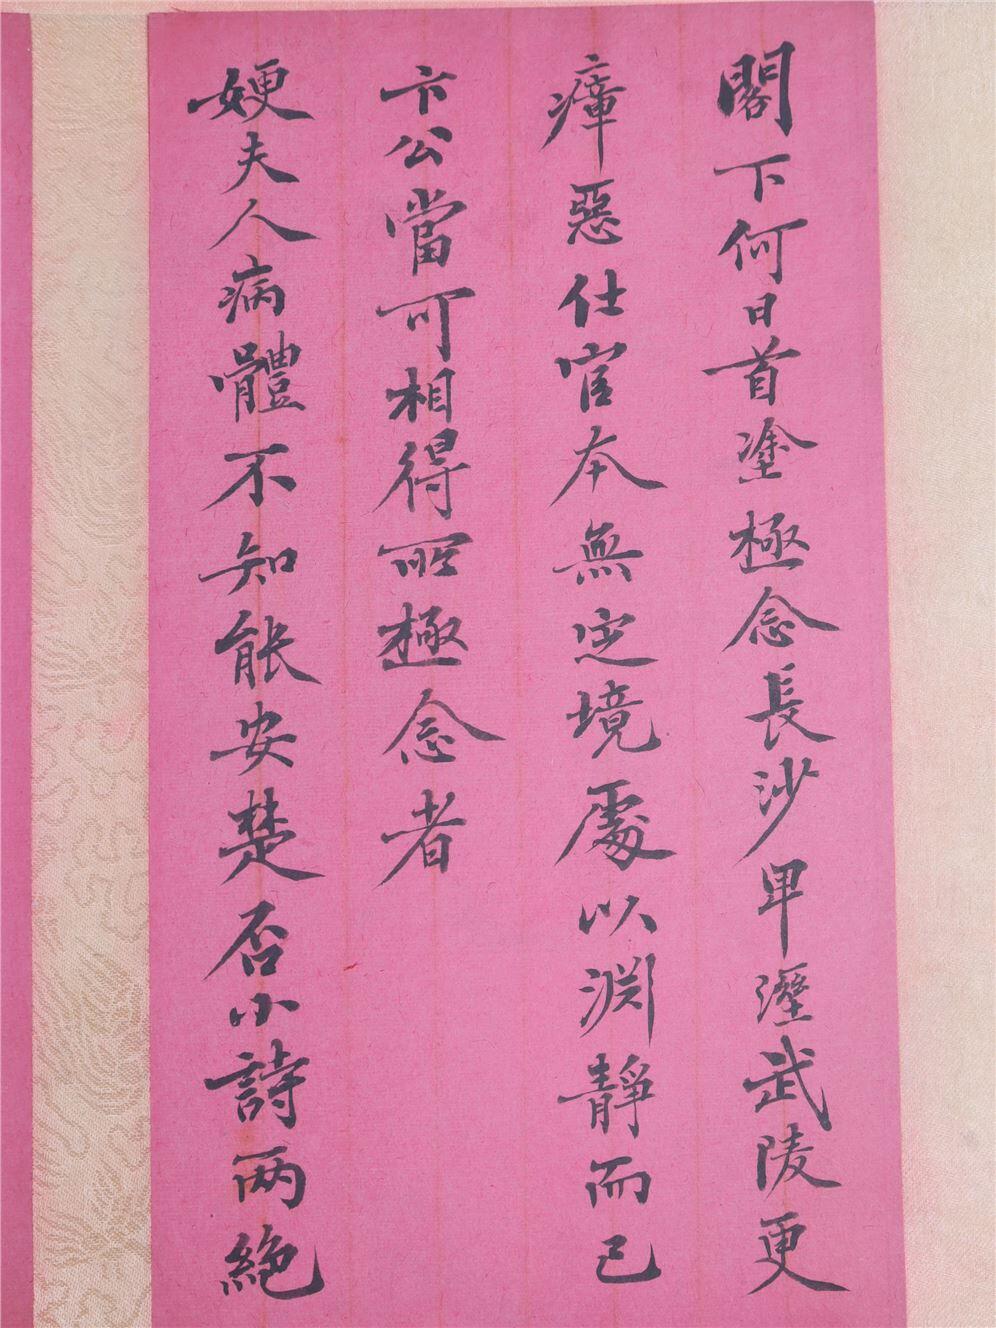 閣下何日首塗極念長沙卑溼武陵更
瘴惡仕宦本無定境處以淵靜而已
卞公當可相得所極念者
嫂夫人病體不知能安楚否小詩兩絕